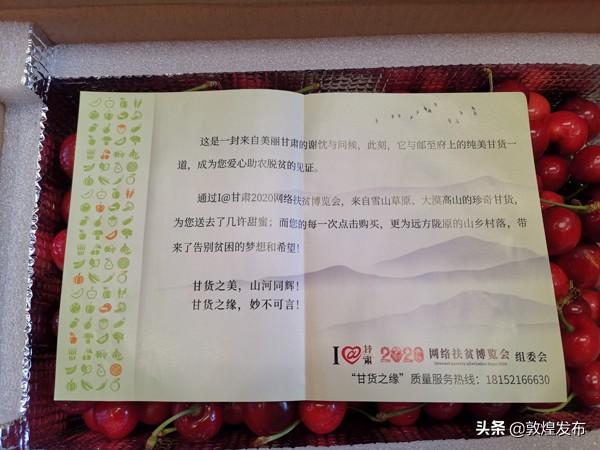 这是一封来自美丽甘肃的谢忱与问候，此刻，它与邮至府上的纯美甘货一
道，成为您爱心助农脱贫的见证。
通过I@甘肃2020网络扶贫博览会，来自雪山草原、大漠高山的珍奇甘货，
为您送去了几许甜蜜；而您的每一次点击购买，更为远方陇原的山乡村落，带
来了告别贫困的梦想和希望！
甘货之美，山河同辉！
甘货之缘，妙不可言！
I@甘肃 2020 网络扶贫博览会 组委会
“甘货之缘”质量服务热线：18152166630
头条 @敦煌发布